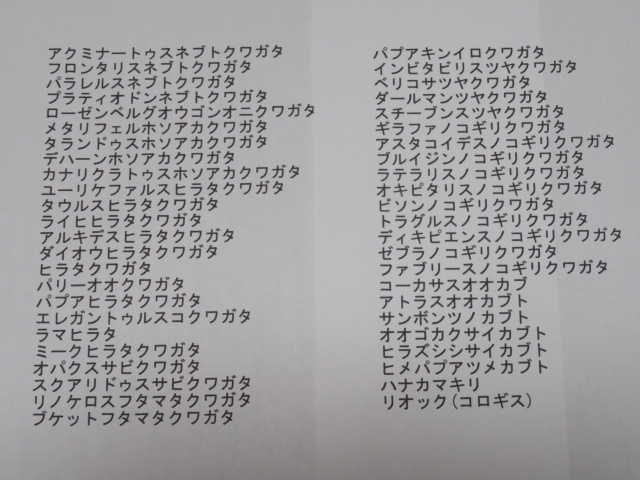 アクミナートゥスネブトクワガタ
フロンタリスネブトクワガタ
パラレルスネブトクワガタ
プラティオドンネブトクワガタ
ローゼンベルグオウゴンオニクワガタ
メタリフェルホソアカクワガタ
タランドゥスホソアカクワガタ
デハーンホソアカクワガタ
カナリクラトゥスホソアカクワガタ
ユーリケファルスヒラタクワガタ
タウルスヒラタクワガタ
ライヒヒラタクワガタ
アルキデスヒラタクワガタ
ダイオウヒラタクワガタ
ヒラタクワガタ
パリーオオクワガタ
パプアヒラタクワガタ
エレガントゥルスコクワガタ
ラマヒラタ
ミークヒラタクワガタ
オパクスサビクワガタ
スクアリドゥスサビクワガタ
リノケロスフタマタクワガタ
ブケットフタマタクワガタ
パプアキンイロクワガタ
インビタビリスツヤクワガタ
ベリコサツヤクワガタ
ダールマンツヤクワガタ
スチーブンスツヤクワガタ
ギラファノコギリクワガタ
アスタコイデスノコギリクワガタ
ブルイジンノコギリクワガタ
ラテラリスノコギリクワガタ
オキピタリスノコギリクワガタ
ビソンノコギリクワガタ
トラグルスノコギリクワガタ
ディキピエンスノコギリクワガタ
ゼブラノコギリクワガタ
ファブリースノコギリクワガタ
コーカサスオオカブ
アトラスオオカブト
サンボンツノカブト
オオゴカクサイカブト
ヒラズシシサイカブト
ヒメパプアツメカブト
ハナカマキリ
リオック(コロギス)